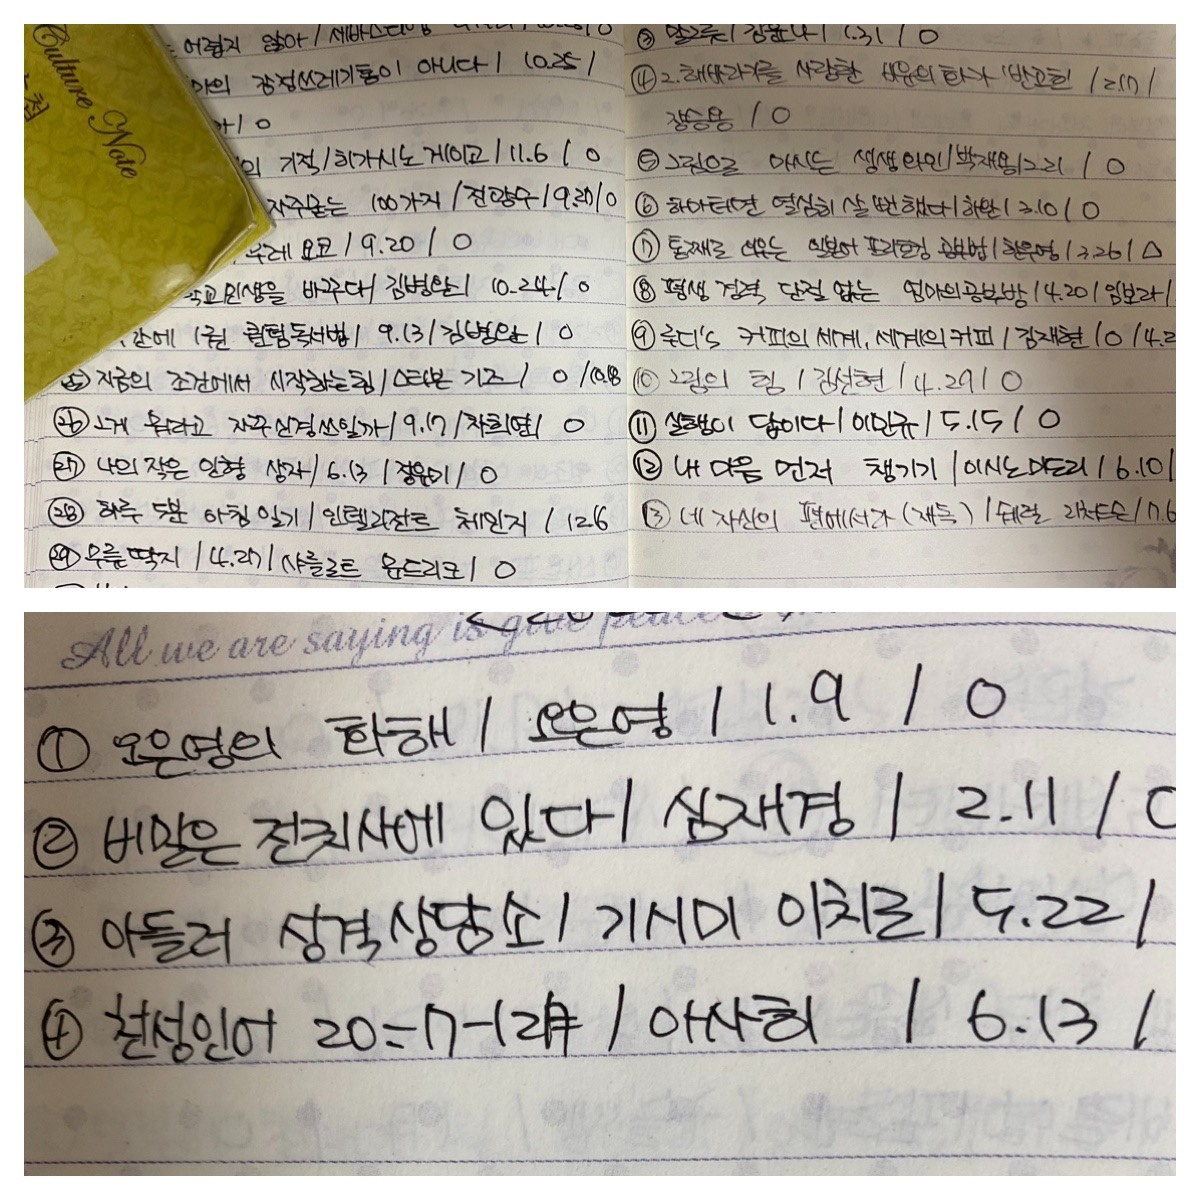 Culture Note
어렵지 않아 /
감정쓰레기통이 아니다 / 10.25 /
/ 0
의 기적 / 히가시노 게이고 / 11.6 / 0
자주묻는 100가지 / 전광수 / 9.20 / 0
요코 / 9.20 / 0
바꾸다 / 김병완 / 10.24 / 0
1권 퀀텀독서법 / 9.13 / 김병완 / 0
지금의 조건에서 시작하는 힘 / 스티븐 기즈 / 0 / 10.8
26 그게 뭐라고 자꾸 신경쓰일까 / 9.17 / 차희연 / 0
27 나의 작은 인형 상자 / 6.13 / 정유미 / 0
28 하루 5분 아침 일기 / 인텔리전트 체인지 / 12.6
29 무릎딱지 / 4.27 / 샤를로트 문드리크 / 0
③ / 1.31 / 0
④ 2. 해바라기를 사랑한 태양의 화가 반고흐 / 2.17 /
장승용 / 0
⑤ 그림으로 마시는 생생와인 / 박재원 / 2.21 / 0
⑥ 하마터면 열심히 살 뻔했다 / 하완 / 3.10 / 0
⑦ 통째로 외우는 일본어 프리토킹 공부법 / 3.26 / △
⑧ 평생 경력 단절 없는 엄마의공부방 / 4.20 / 임보라 /
⑨ 루디's 커피의 세계, 세계의 커피 / 김재현 / 0 / 4.2
⑩ 그림의 힘 / 김선현 / 4.29 / 0
⑪ 실행이 답이다 / 이민규 / 5.15 / 0
⑫ 내 마음 먼저 챙기기 / 이시노 미도리 / 6.10 /
⑬ 네 자신의 편에서라 (재독) / 쉐럴 리처드슨 / 7.6
All we are saying is give peace
① 오은영의 화해 / 오은영 / 1.9 / 0
② 비밀은 전치사에 있다 / 심재경 / 2.11 / 0
③ 아들러 성격상담소 / 기시미 이치로 / 5.22 /
④ 천성인어 / 아사히 / 6.13 /